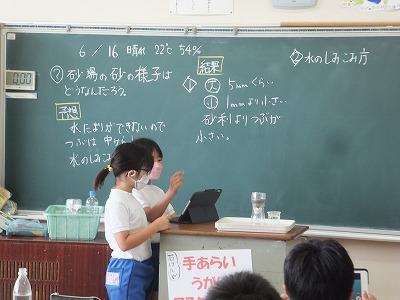 6/16 晴れ 22℃ 54%
? 砂場の砂の様子は
どうなんだろう。
予想
水たまりができないので
つぶは
水のしみこ
結果
① 大 5mmくらい
小 1mmより小さい
砂利よりつぶが
小さい。
② 水のしみこみ方
手あらい
うがい